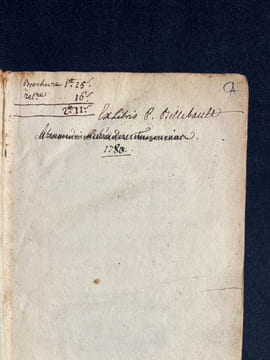 Brochure 1tt 15s.
rel.re 16s.
2tt 11s.
Ex Libris P. Billebault
1780.